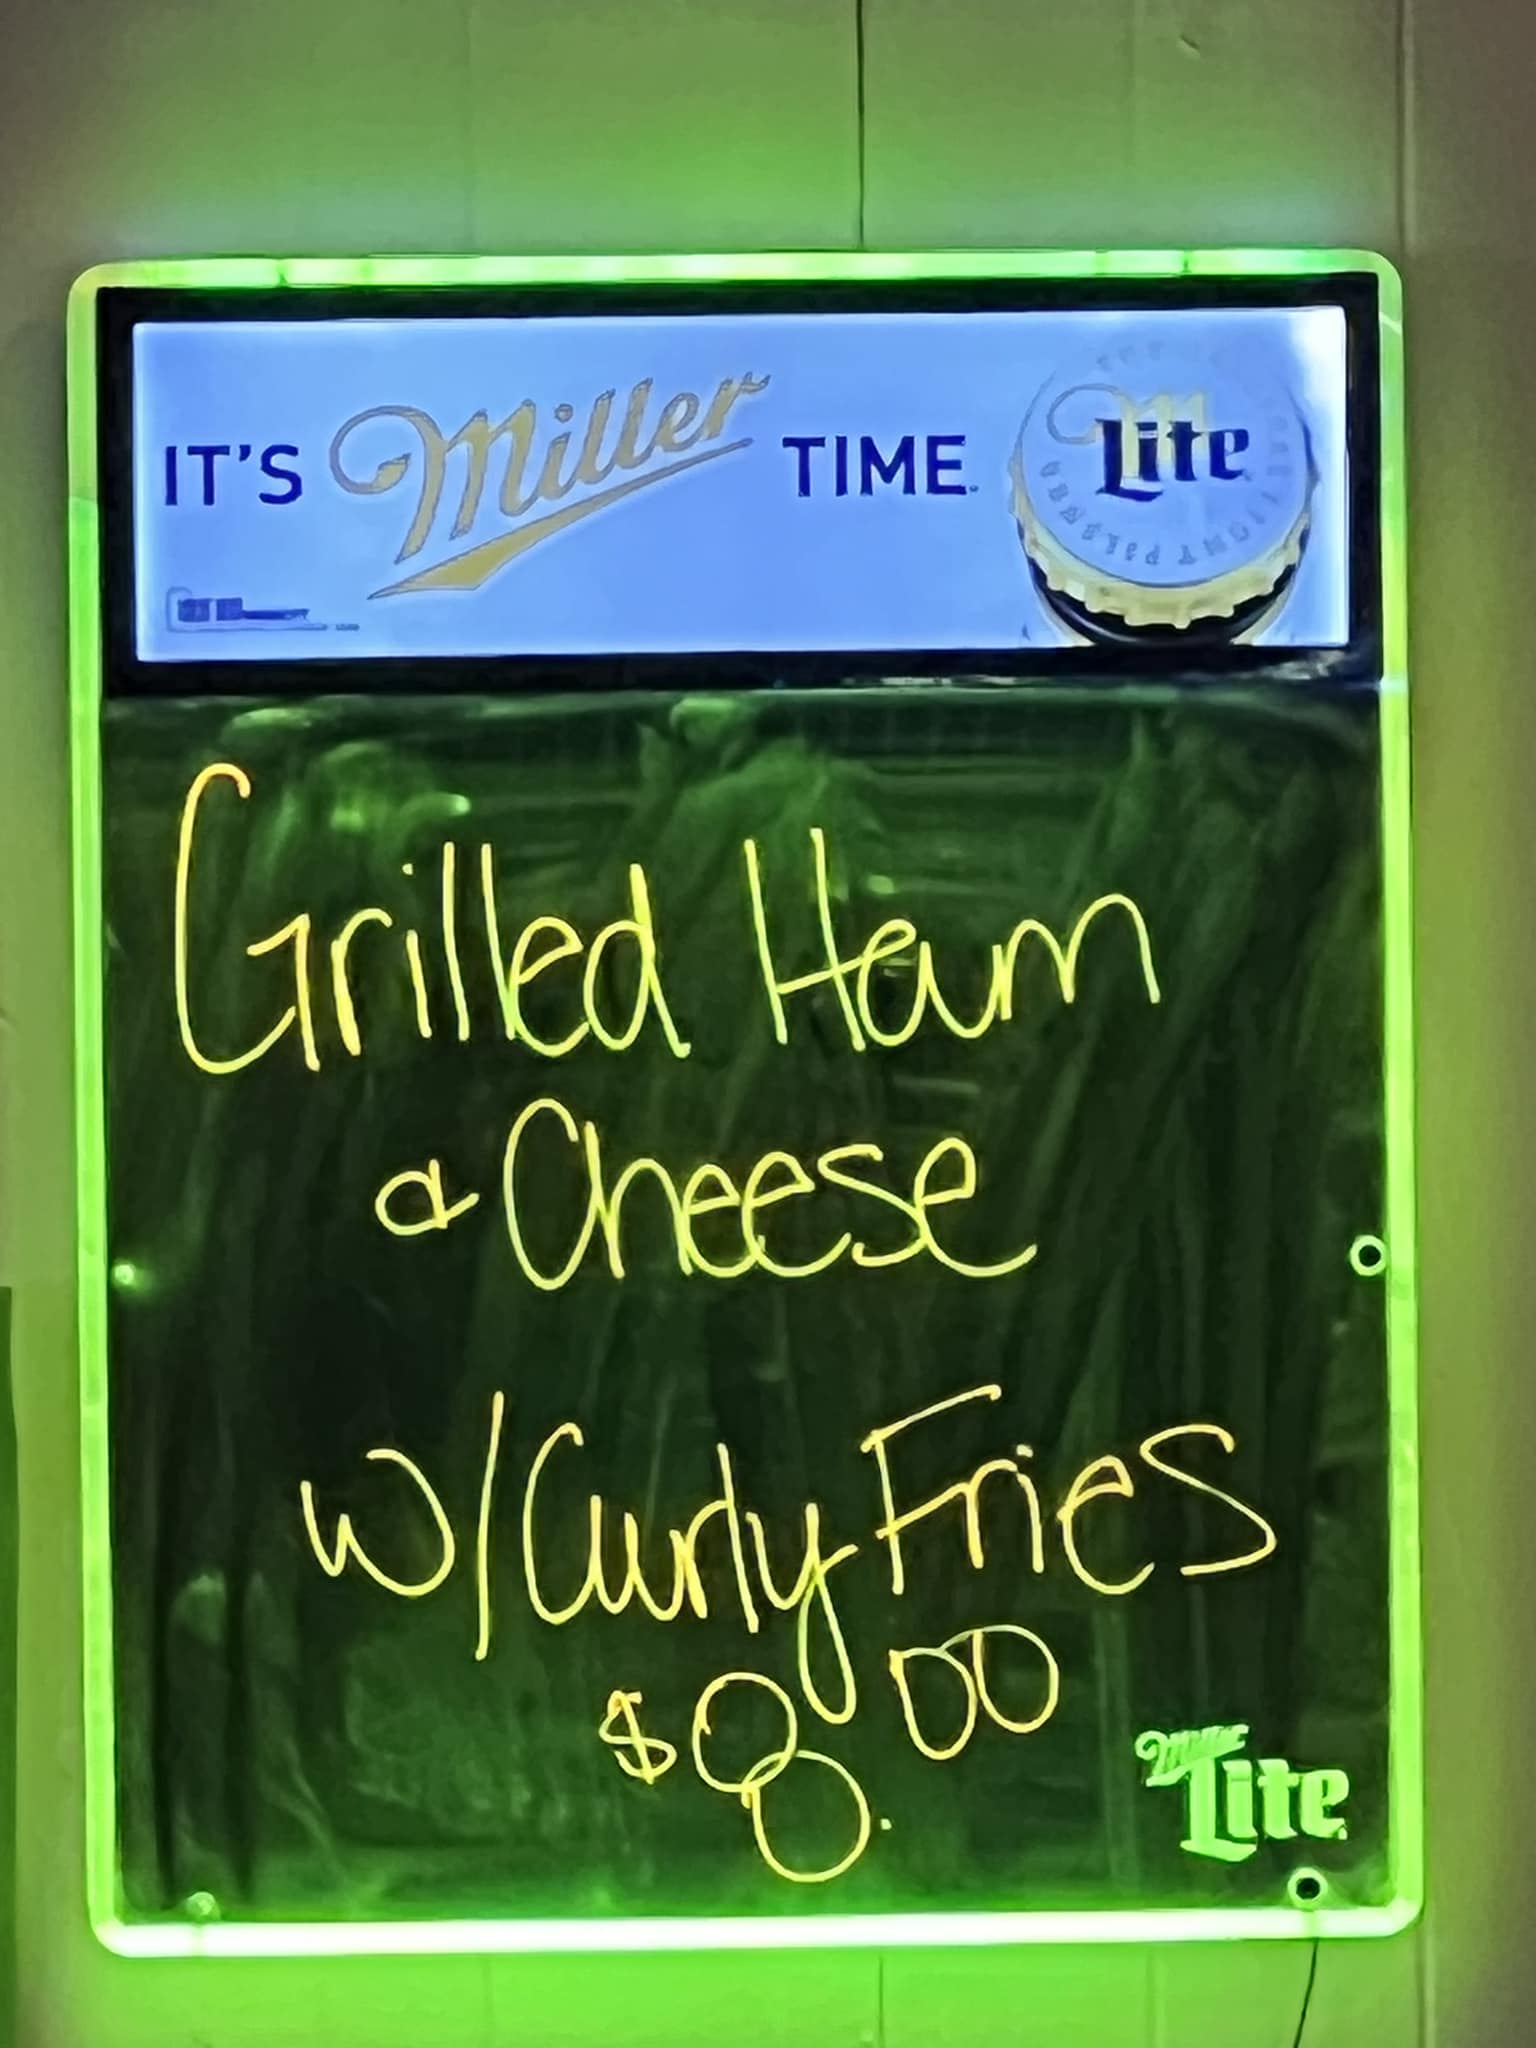 IT'S Miller TIME.
Miller Lite
Grilled Ham
& Cheese
w/Curly Fries
$8.00
Miller Lite